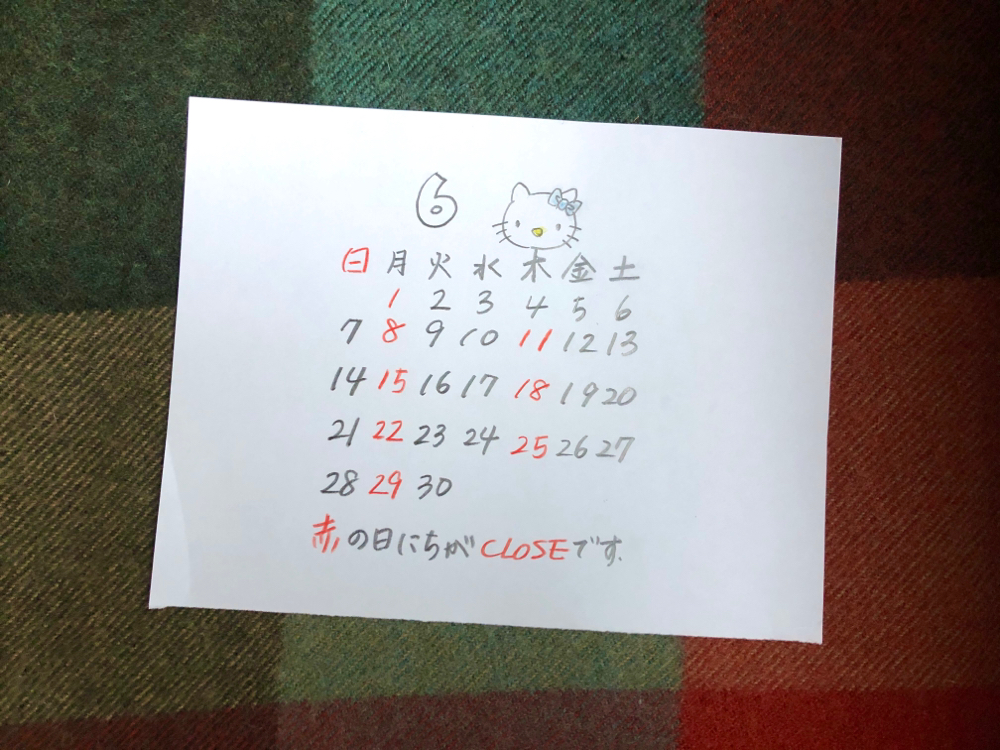 6
日 月 火 水 木 金 土
1 2 3 4 5 6
7 8 9 10 11 12 13
14 15 16 17 18 19 20
21 22 23 24 25 26 27
28 29 30
赤の日にちがCLOSEです.